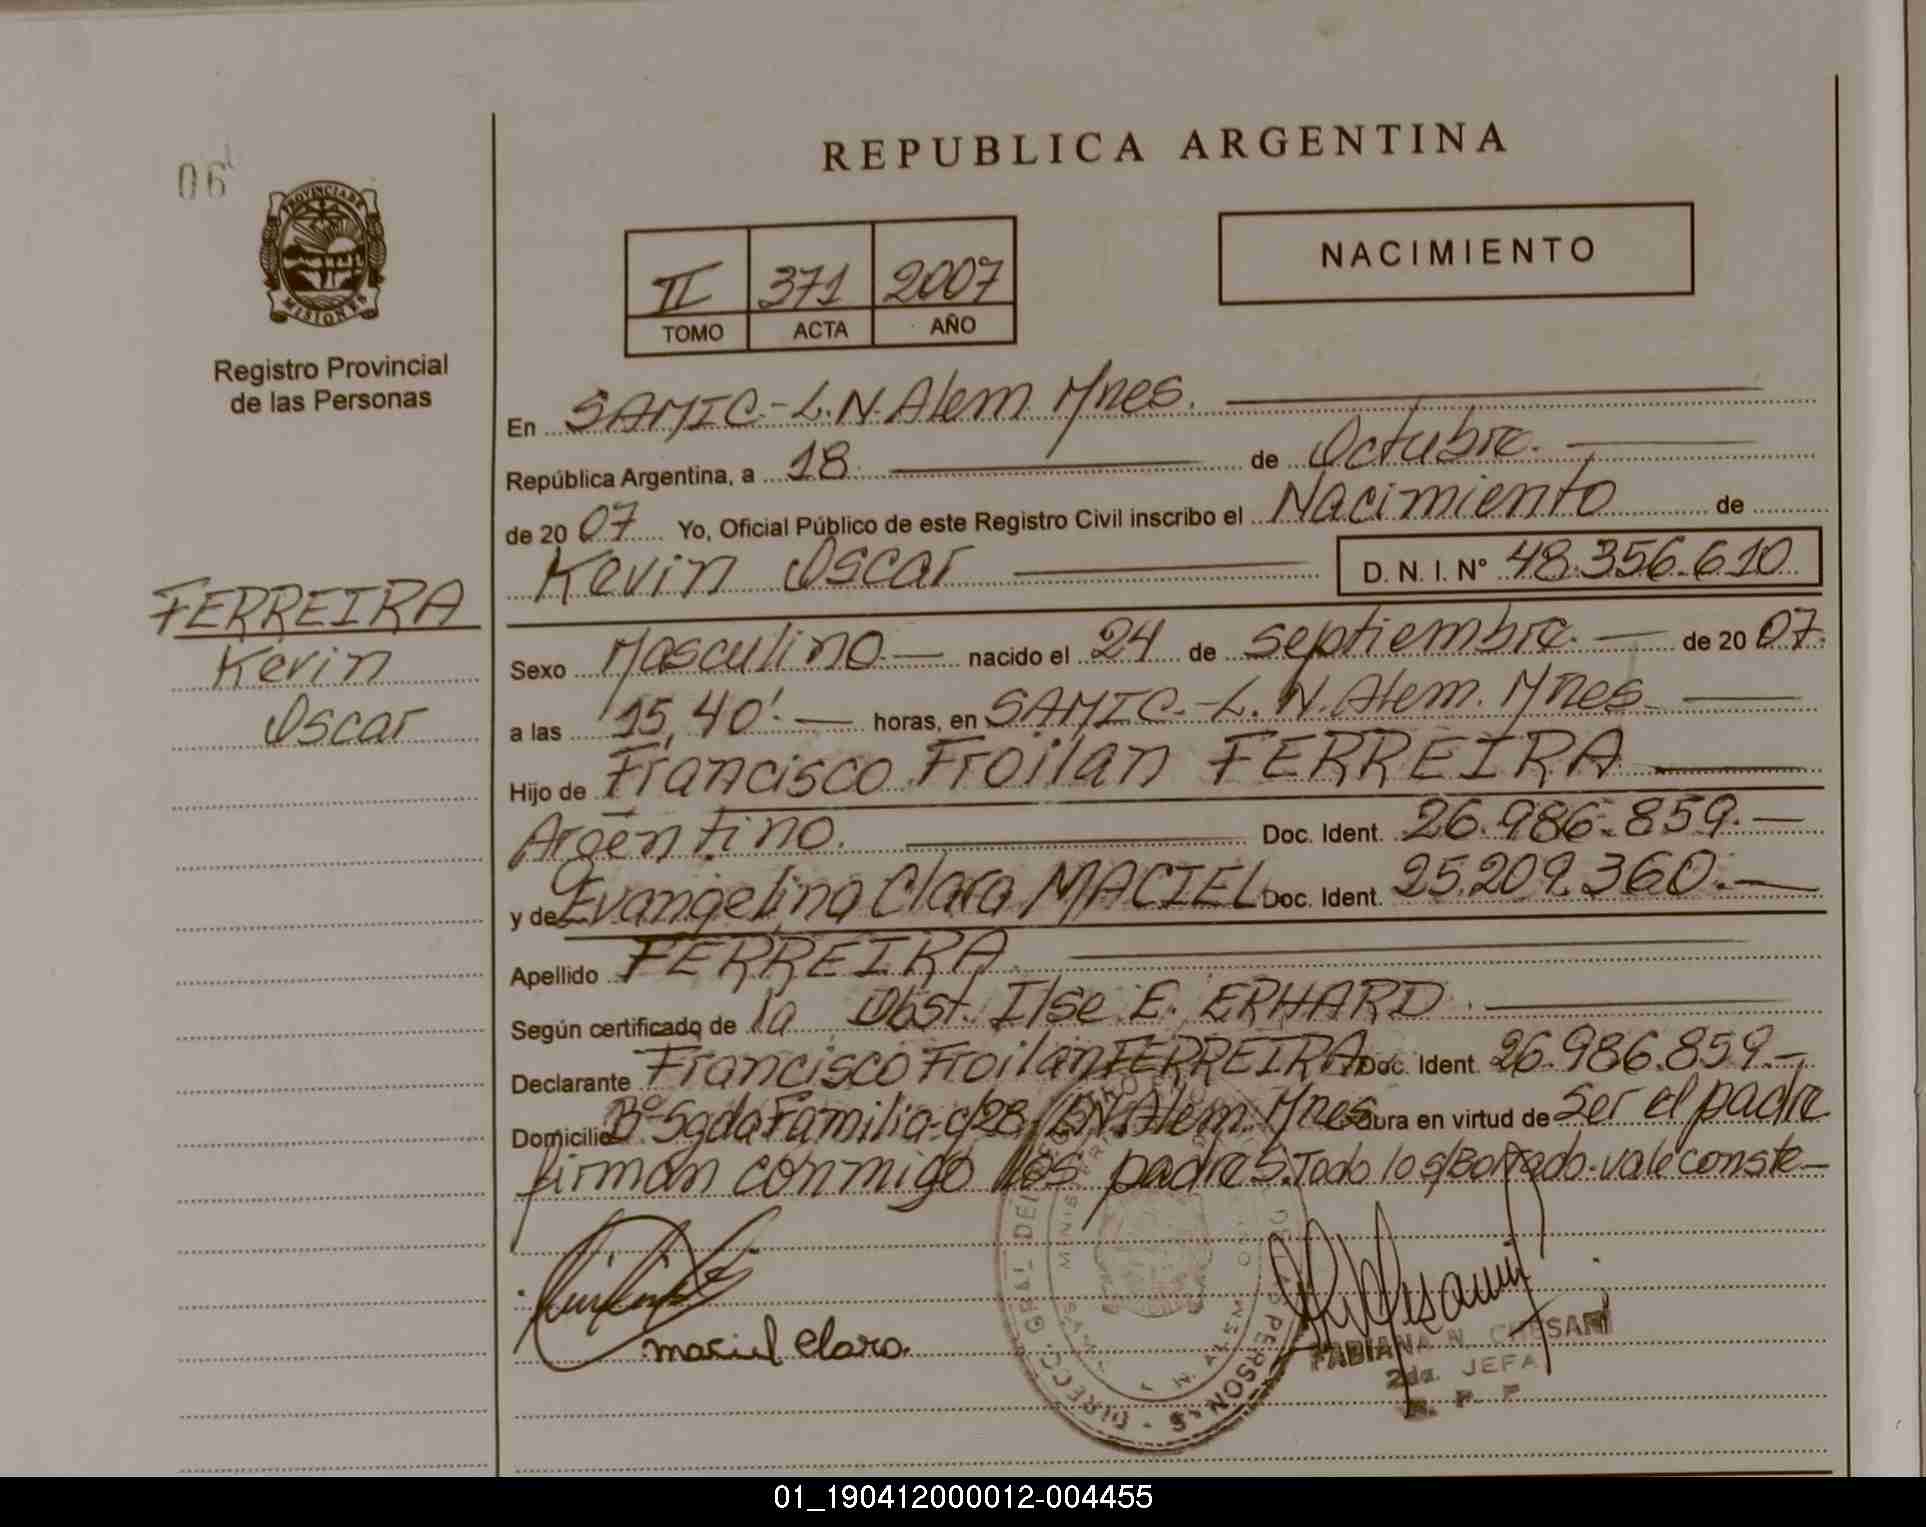 REPUBLICA ARGENTINA
06
PROVINCIA DE
MISIONES
Registro Provincial
de las Personas
II 371 2007
TOMO ACTA AÑO
NACIMIENTO
En SAMIC.-L.N.Alem Mnes.
República Argentina, a 18 de Octubre.
de 2007 Yo, Oficial Público de este Registro Civil inscribo el Nacimiento de
Kevin Oscar D. N. I. N° 48.356.610
FERREIRA
Kevin
Oscar
Sexo Masculino nacido el 24 de septiembre. de 2007.
a las 15,40'. horas, en SAMIC.-L.N.Alem. Mnes.
Hijo de Francisco Froilan FERREIRA
Argentino. Doc. Ident. 26.986.859.-
y de Evangelina Clara MACIEL Doc. Ident. 25.209.360.-
Apellido FERREIRA
Según certificado de la Obst. Ilse E. ERHARD.
Declarante Francisco Froilan FERREIRA Doc. Ident. 26.986.859.-
Domicilio B° Sgda Familia-c/28 L.N.Alem. Mnes obra en virtud de ser el padre
firman conmigo los padres. Todo lo s/Borrado. vale conste-
maciel Clara.
FABIANA N. CHESANI
2da. JEFA
R. P. P
01_190412000012-004455